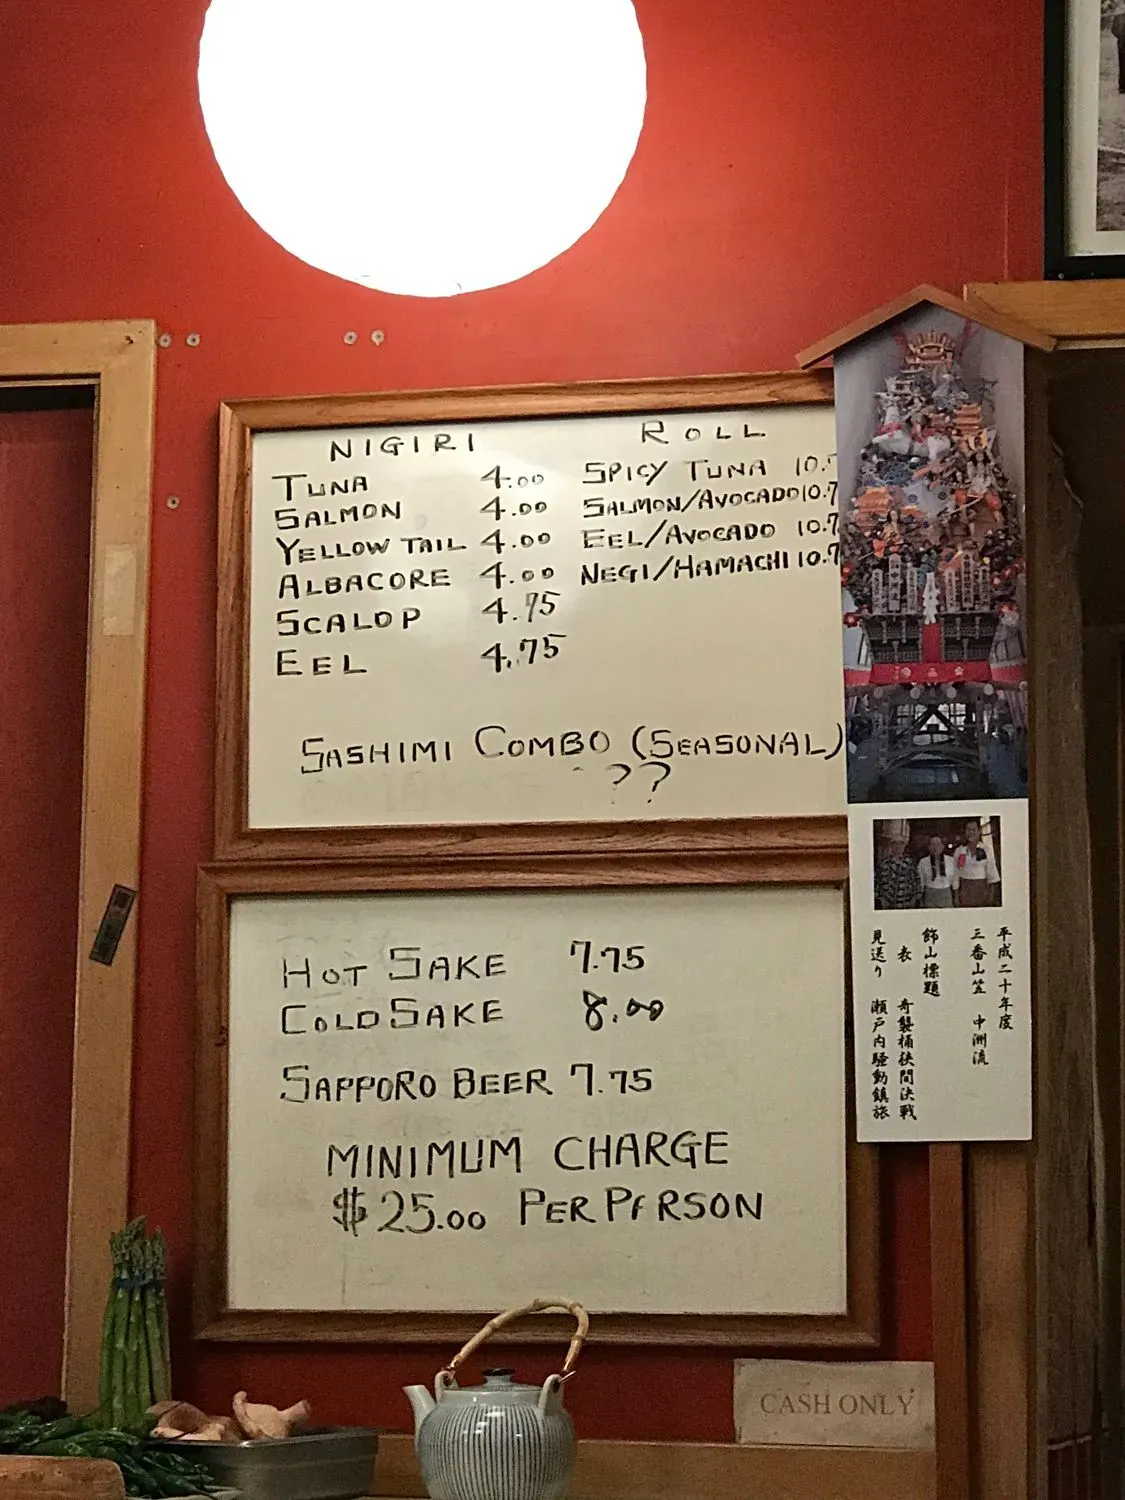 NIGIRI
TUNA 4.00
SALMON 4.00
YELLOW TAIL 4.00
ALBACORE 4.00
SCALOP 4.75
EEL 4.75
ROLL
SPICY TUNA 10.7
SALMON/AVOCADO 10.7
EEL/AVOCADO 10.7
NEGI/HAMACHI 10.7
SASHIMI COMBO (SEASONAL)
??
HOT SAKE 7.75
COLD SAKE 8.00
SAPPORO BEER 7.75
MINIMUM CHARGE
$25.00 PER PERSON
平成二十年度
三番山笠 中洲流
飾山標題
表 奇襲桶狭間決戦
見送り 瀬戸内騒動鎮旅
CASH ONLY